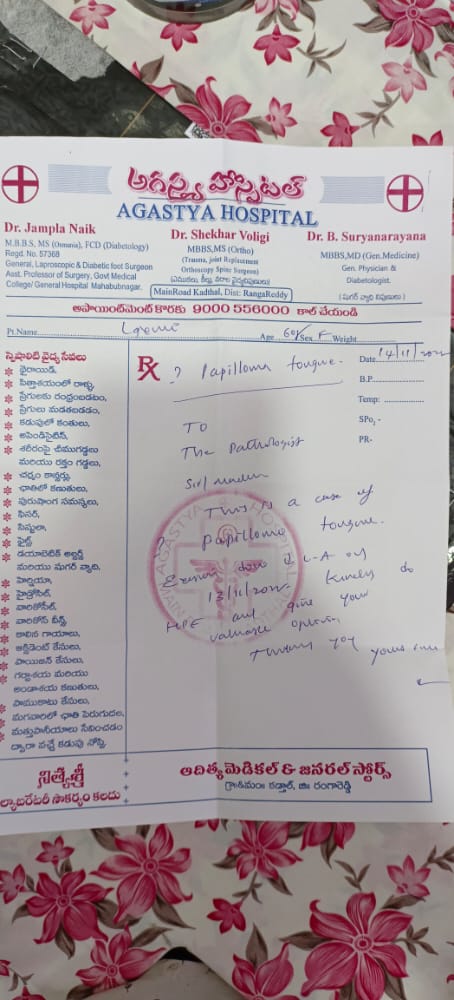 అగస్త్య హాస్పిటల్
AGASTYA HOSPITAL
Dr. Jampla Naik
M.B.B.S, MS (Osmania), FCD (Diabetology)
Regd. No. 57368
General, Laproscopic & Diabetic foot Surgeon
Asst. Professor of Surgery, Govt Medical
College/ General Hospital Mahabubnagar.
Dr. Shekhar Voligi
MBBS,MS (Ortho)
(Trauma, joint Replacement
Orthoscopy Spine Surgeon)
(ఎముకలు, కీళ్ళు, నరాల వైద్యనిపుణులు)
Dr. B. Suryanarayana
MBBS,MD (Gen.Medicine)
Gen. Physician &
Diabetologist.
(షుగర్ వ్యాధి నిపుణులు)
MainRoad Kadthal, Dist: RangaReddy
అపాయింట్‌మెంట్ కొరకు 9000 556000 కాల్ చేయండి
Pt.Name Age 60/ Sex F Weight
స్పెషాలిటీ వైద్య సేవలు
థైరాయిడ్,
పిత్తాశయంలో రాళ్ళు,
ప్రేగులకు రంధ్రంపడటం,
ప్రేగులు మడతబడడం,
కడుపులో కంతులు,
అపెండిసైటిస్,
శరీరంపై చీముగడ్డలు
మరియు రక్తం గడ్డలు,
చర్మం క్యాన్సర్లు,
ఛాతిలో కణుతులు,
పురుషాంగ సమస్యలు,
ఫిషర్,
ఫిస్టులా,
పైల్స్
డయాబెటిక్ అల్సర్
మరియు షుగర్ వ్యాధి,
హెర్నియా,
హైడ్రోసిల్,
వారికోసీల్,
వారికోస్ వీన్స్,
కాలిన గాయాలు,
ఆక్సిడెంట్ కేసులు,
పాయిజన్ కేసులు,
గర్భాశయ మరియు
అండాశయ కణుతులు,
పాముకాటు కేసులు,
మగవారిలో ఛాతి పెరుగుదల,
మత్తుపానీయాలు సేవించడం
ద్వారా వచ్చే కడుపు నొప్పి.
Rx ? Papilloma tongue.
Date 14/11/2022
B.P
Temp:
SPo2 -
PR-
To
The Pathologist
Sir/madam
This is a case of
? papilloma tongue.
Excision done L-A on
13/11/2022 Kindly do
HPE and give your
valuable opinion
Thanking you
yours
AGASTYA HOSPITAL
MAIN
నిత్యశ్రీ
ల్యాబరేటరీ సౌకర్యం కలదు
ఆదిత్య మెడికల్ & జనరల్ స్టోర్స్
గ్రా॥మం॥ కడ్తాల్, జి॥ రంగారెడ్డి